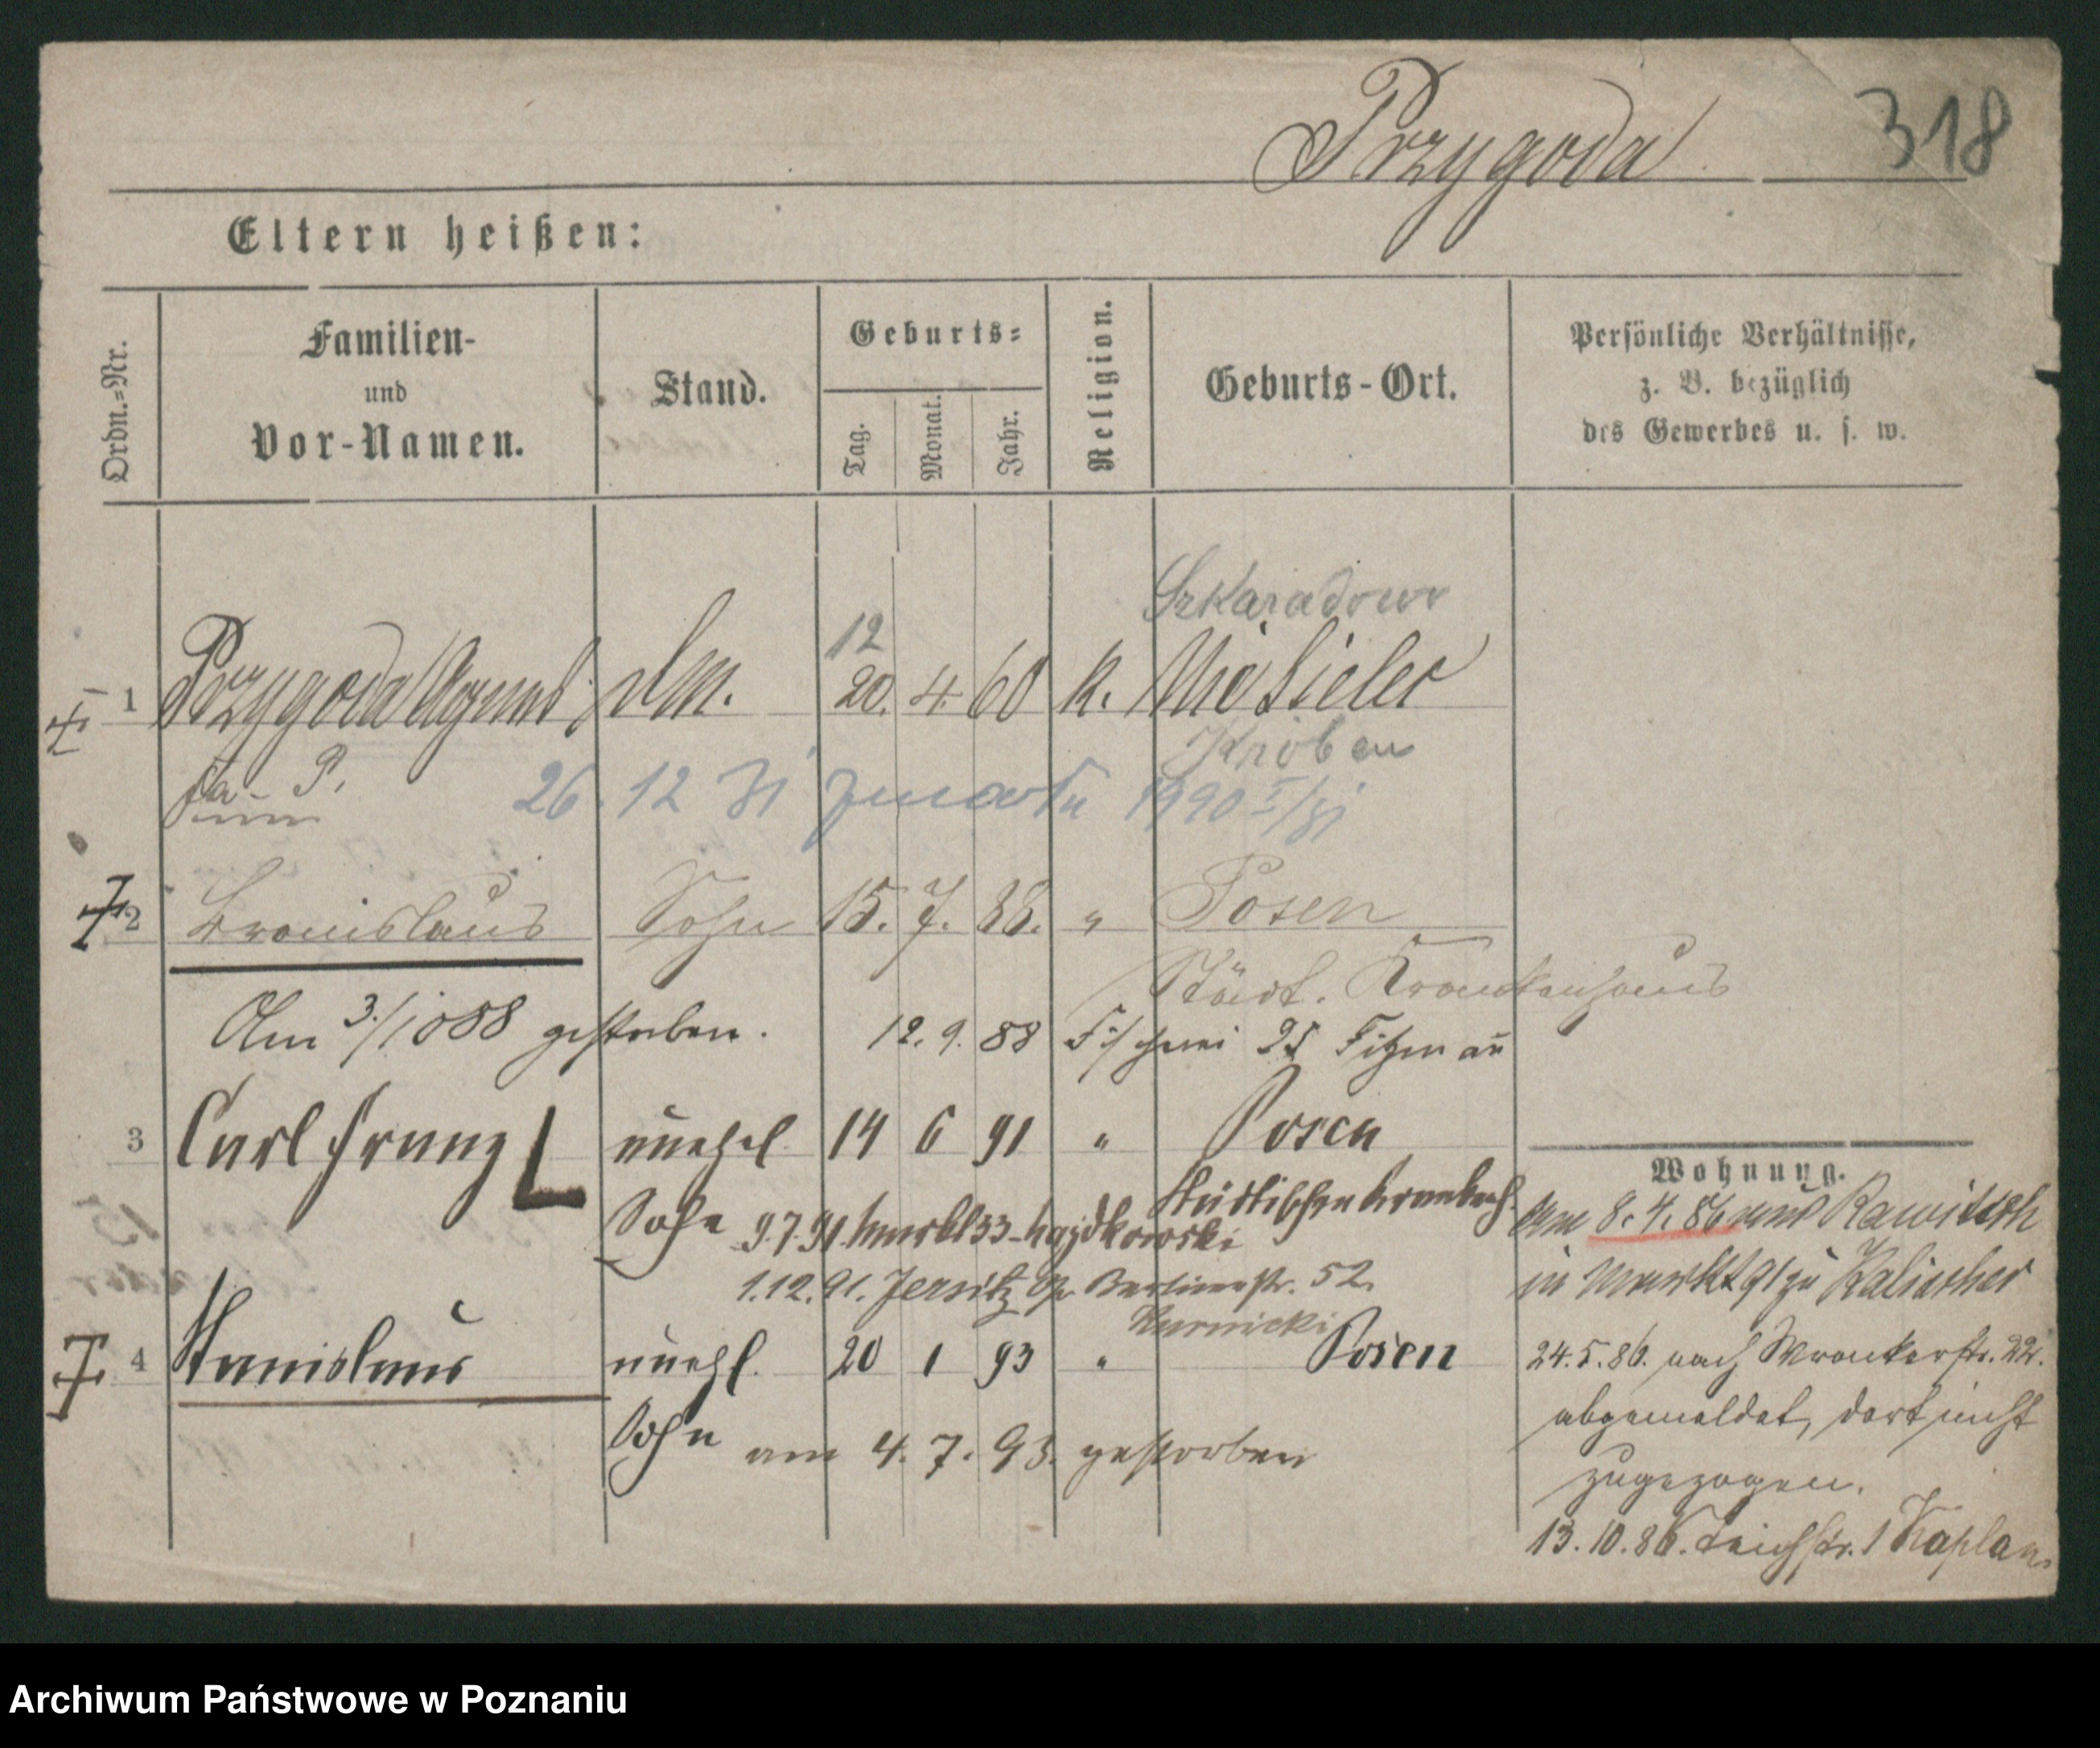 Przygoda 318
Eltern heißen:
Ordn.-Nr.
Familien-
und
Vor-Namen.
Stand.
Geburts-
Tag. Monat. Jahr.
Religion.
Geburts-Ort.
Persönliche Verhältnisse,
z. B. bezüglich
des Gewerbes u. s. w.
Szkaradowo
12
1 Przygoda Agnes, 20. 4. 60 k.
Kröben
26. 12 31 zmarła 1990 I/31
2 Bronislaus Sohn 15. 7. 88. " Posen
Städt. Krankenhaus
Am 3./10 88 gestorben. 12. 9. 88 Fischerei 25
3 Carl Franz unehel. 14 6 91 " Posen
Sohn 9.7.91 Hajdkowski
1.12.91. Jersitz Berlinerstr. 52.
Kurnicki
4 Stanislaus unehl. 20 1 93 " Posen
Sohn am 4. 7. 93. gestorben
Wohnung.
Am 8. 4. 86 aus Rawitsch
in Markt 91 zu Kalischer
24. 5. 86. nach Wronkerstr. 22.
abgemeldet, dort nicht
zugezogen.
13. 10. 86. Teichstr. 1 Kaplan
Archiwum Państwowe w Poznaniu